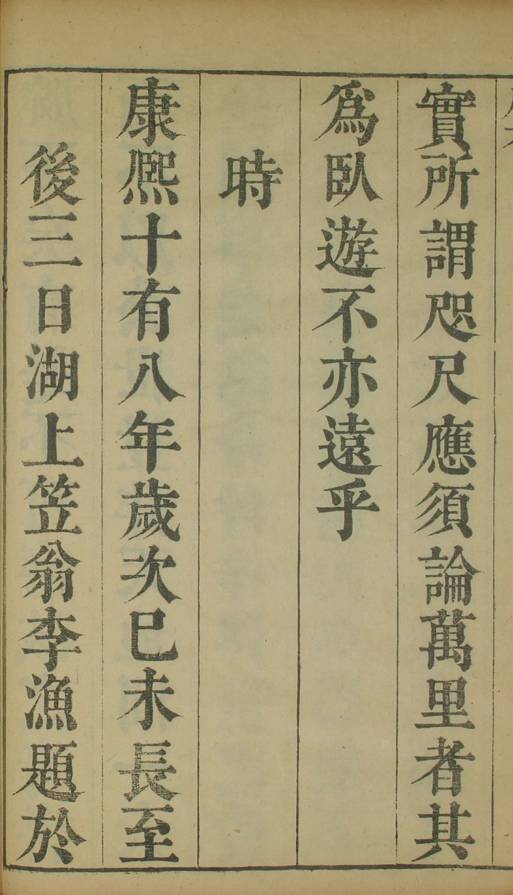 實所謂咫尺應須論萬里者其
爲臥遊不亦遠乎
時
康熙十有八年歲次巳未長至
後三日湖上笠翁李漁題於